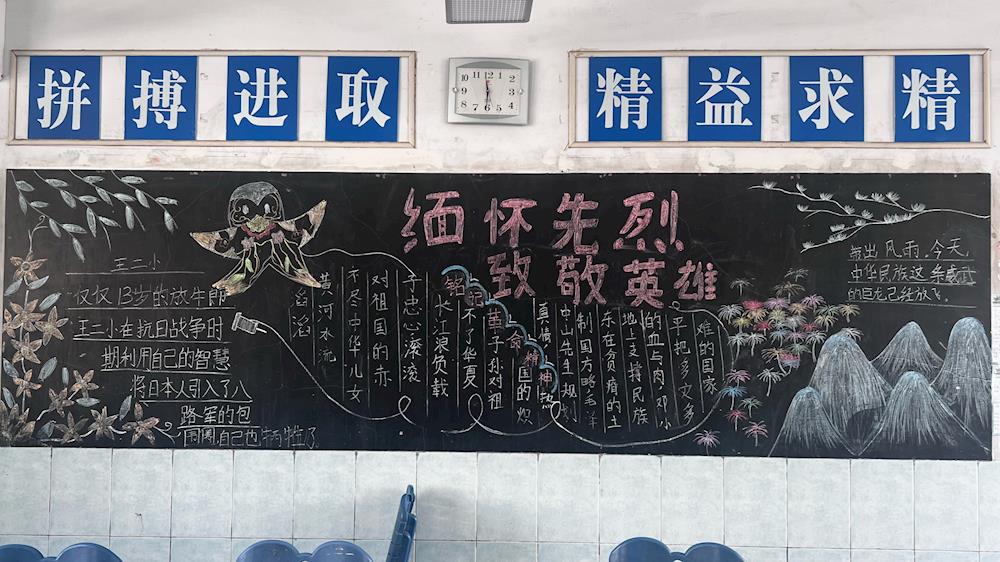 拼搏进取
精益求精
缅怀先烈
致敬英雄
王二小
仅仅13岁的放牛郎
王二小在抗日战争时
期利用自己的智慧
将日本人引入了八
路军的包
围圈,自己也牺牲了
铭记革命精神
滔滔
黄河水流
不尽中华儿女
对祖国的赤
子忠心滚滚
长江浪负载
不了华夏
子孙对祖
国的炽热
真情,
中山先生规划
制国方略毛泽
东在贫瘠的土
地上支撑民族
的血与肉,邓小
平把多灾多
难的国家
出风雨,今天,
中华民族这条威武
的巨龙已经放飞。